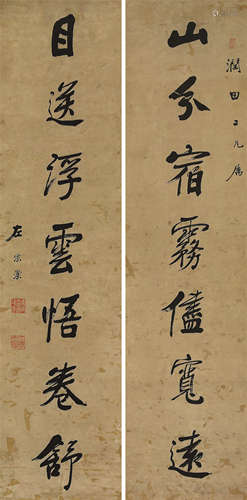 潤田二兄屬
山分宿霧儘寬遠
目送浮雲悟卷舒
左宗棠